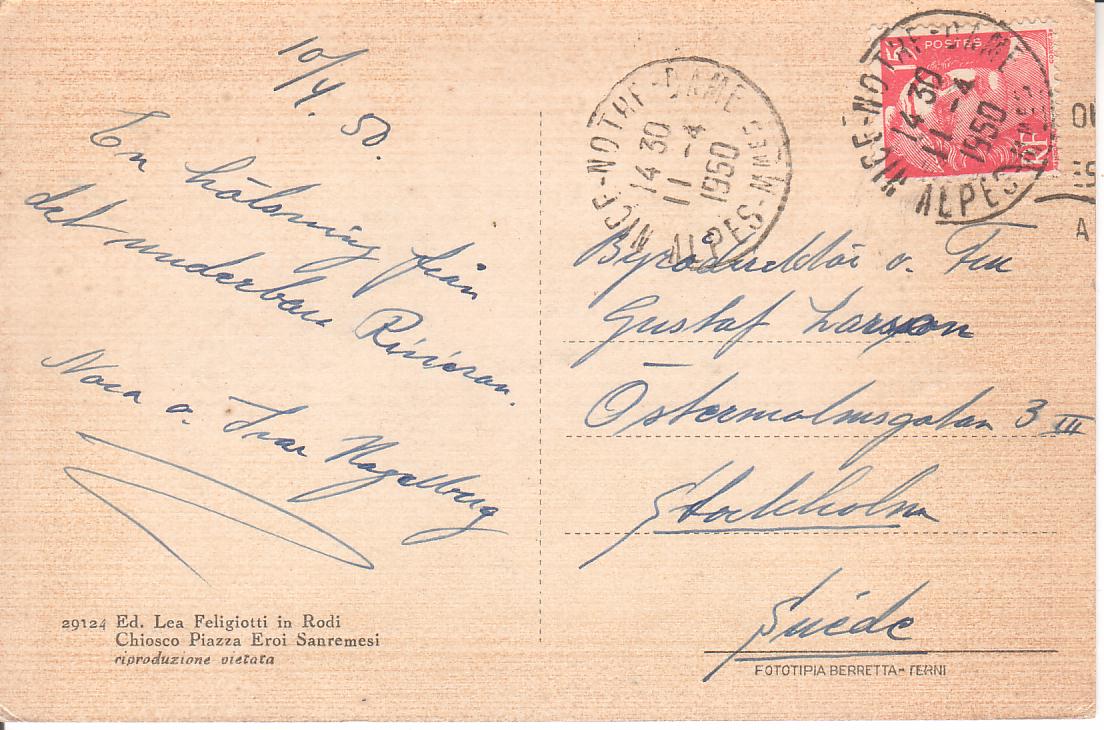 10/4. 50.
En hälsning från
det underbara Rivieran.
o. Ivar Hagelberg
29124 Ed. Lea Feligiotti in Rodi
Chiosco Piazza Eroi Sanremesi
riproduzione vietata
NICE-NOTRE-DAME
14 30
11 -4
1950
ALPES-MMES
POSTES
15F
RF
NICE-NOTRE-DAME
14 30
11 -4
1950
ALPES-MMES
Byrådirektör o. Fru
Gustaf Larsson
Östermalmsgatan 3 III
Stockholm
Suède
FOTOTIPIA BERRETTA-TERNI